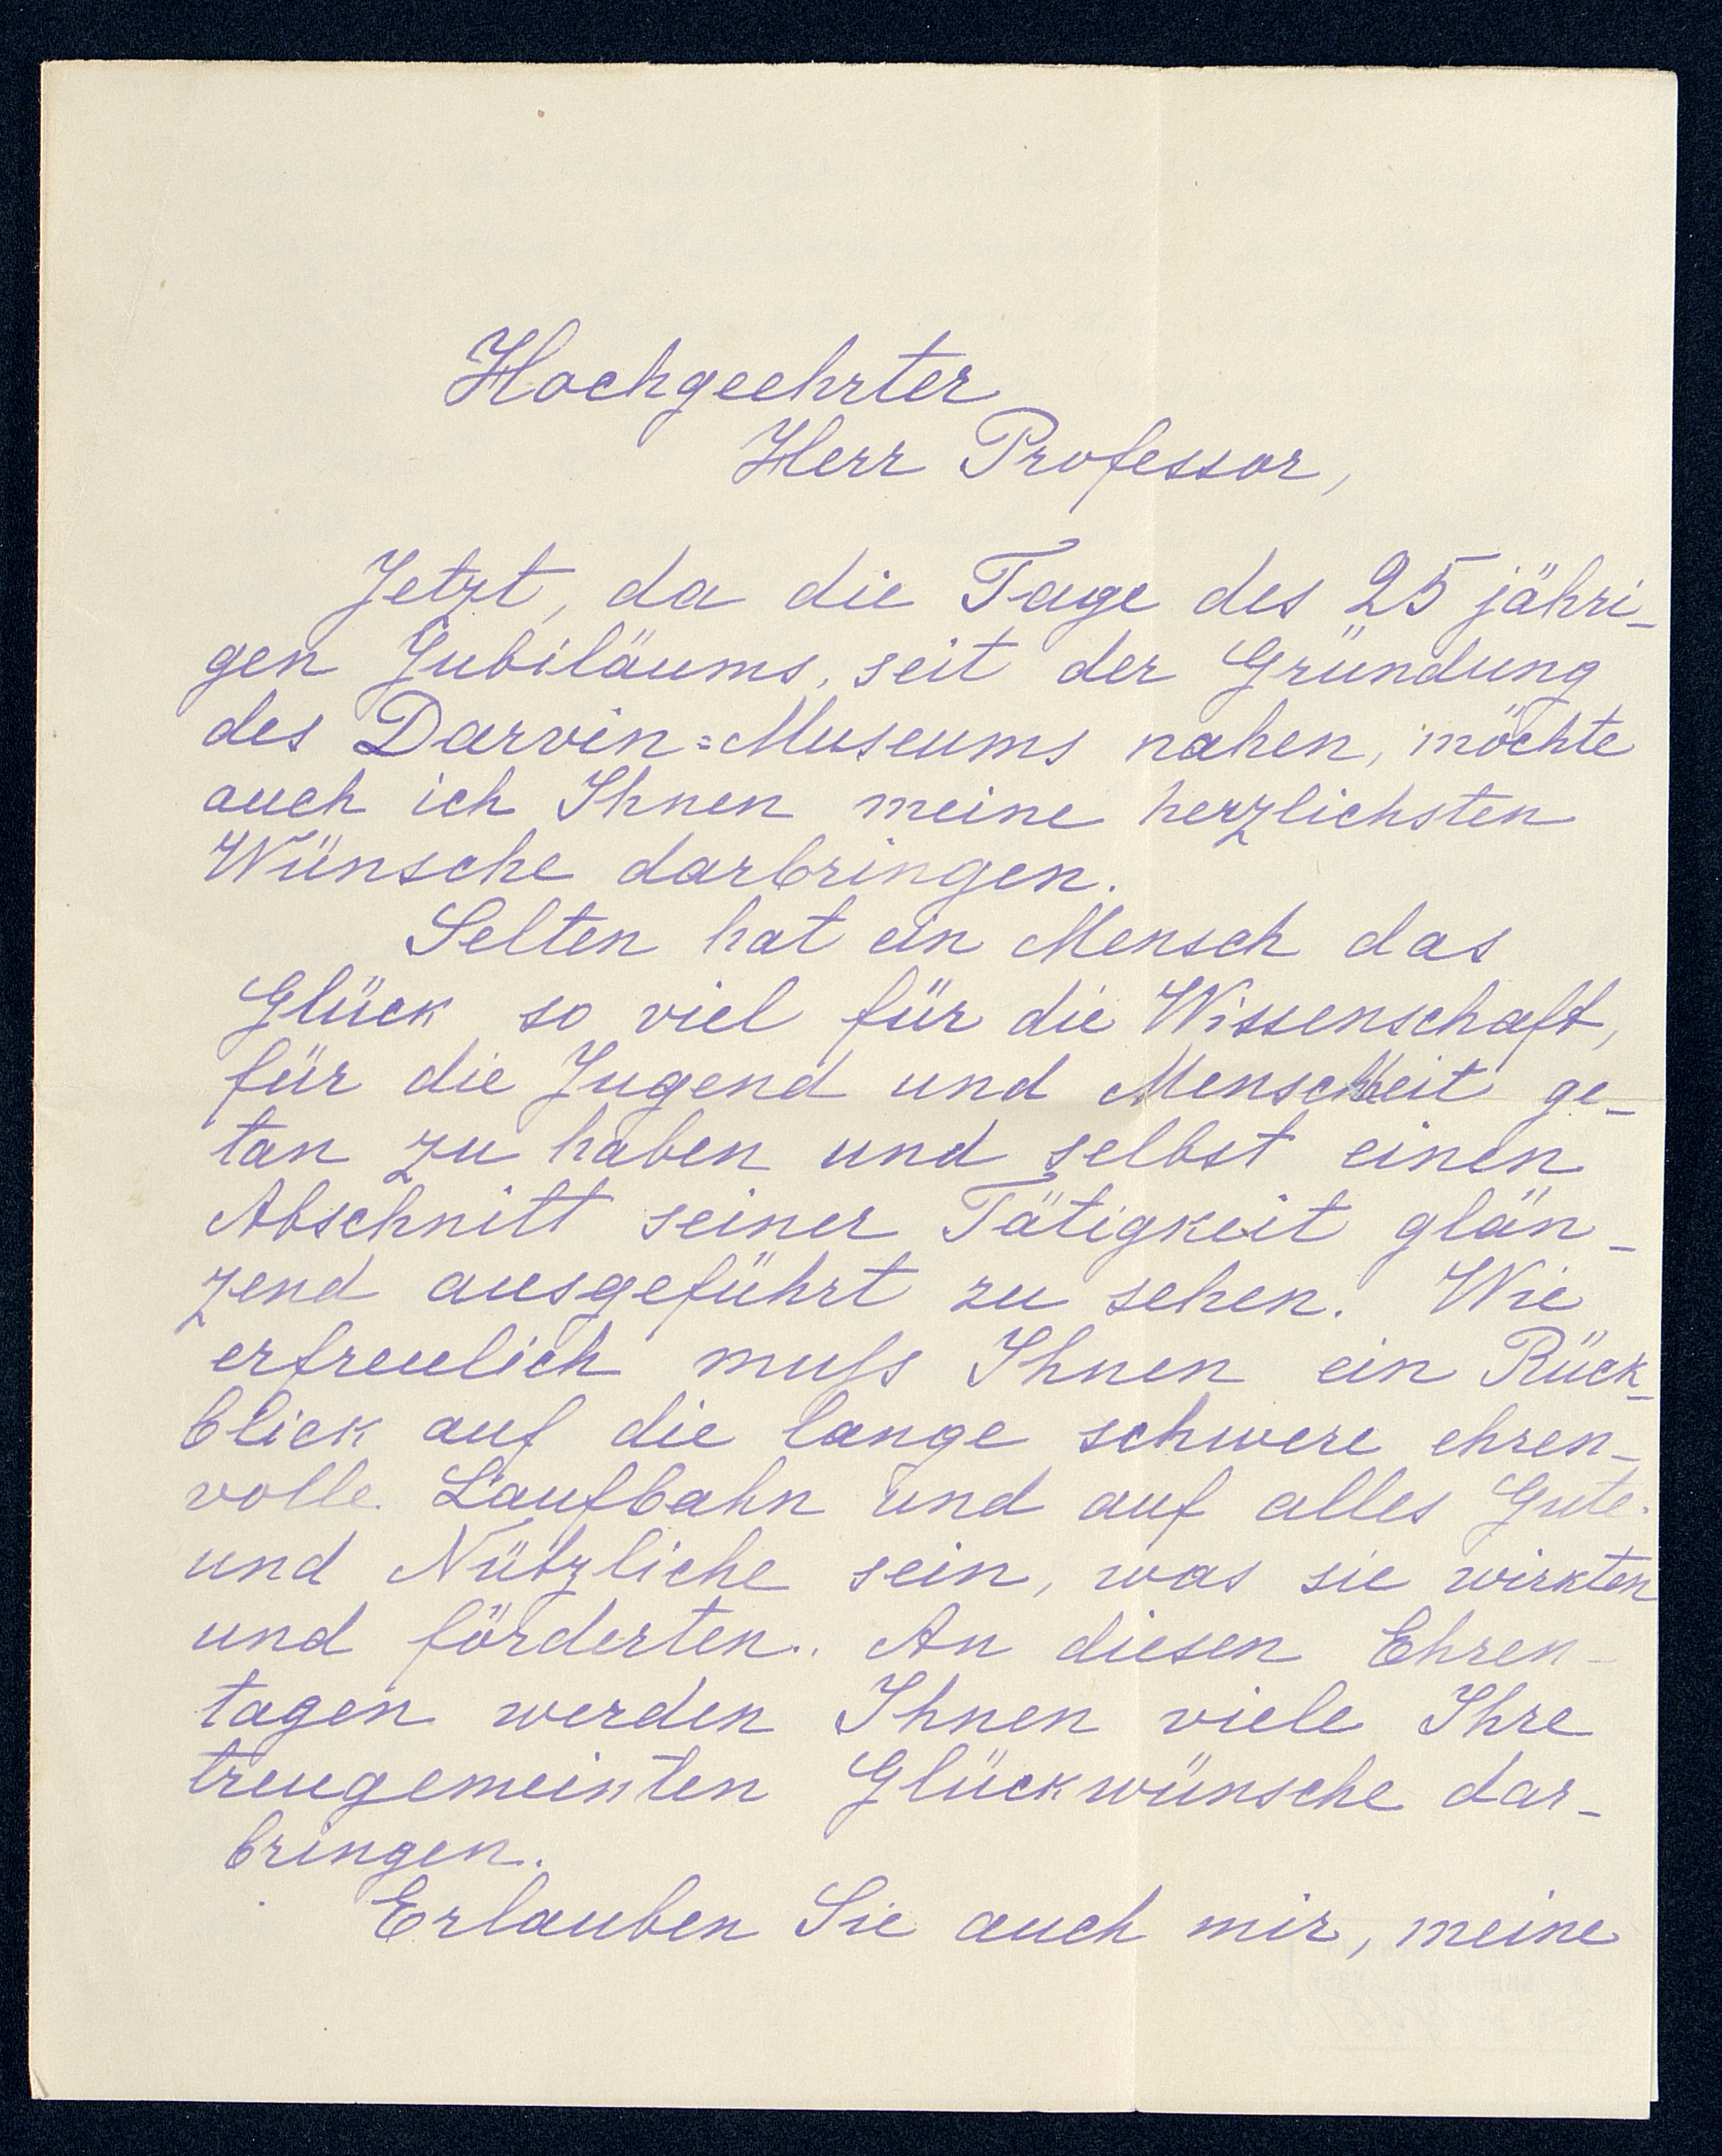 Hochgeehrter
Herr Professor,
Jetzt, da die Tage des 25 jähri-
gen Jubiläums, seit der Gründung
des Darvin=Museums nahen, möchte
auch ich Ihnen meine herzlichsten
Wünsche darbringen.
Selten hat ein Mensch das
Glück so viel für die Wissenschaft,
für die Jugend und Menschheit ge-
tan zu haben und selbst einen
Abschnitt seiner Tätigkeit glän-
zend ausgeführt zu sehen. Wie
erfreulich muſs Ihnen ein Rück-
blick auf die lange schwere ehren-
volle Laufbahn und auf alles Gute
und Nützliche sein, was sie wirkten
und förderten. An diesen Ehren-
tagen werden Ihnen viele Ihre
treugemeinten Glückwünsche dar-
bringen.
Erlauben Sie auch mir, meine